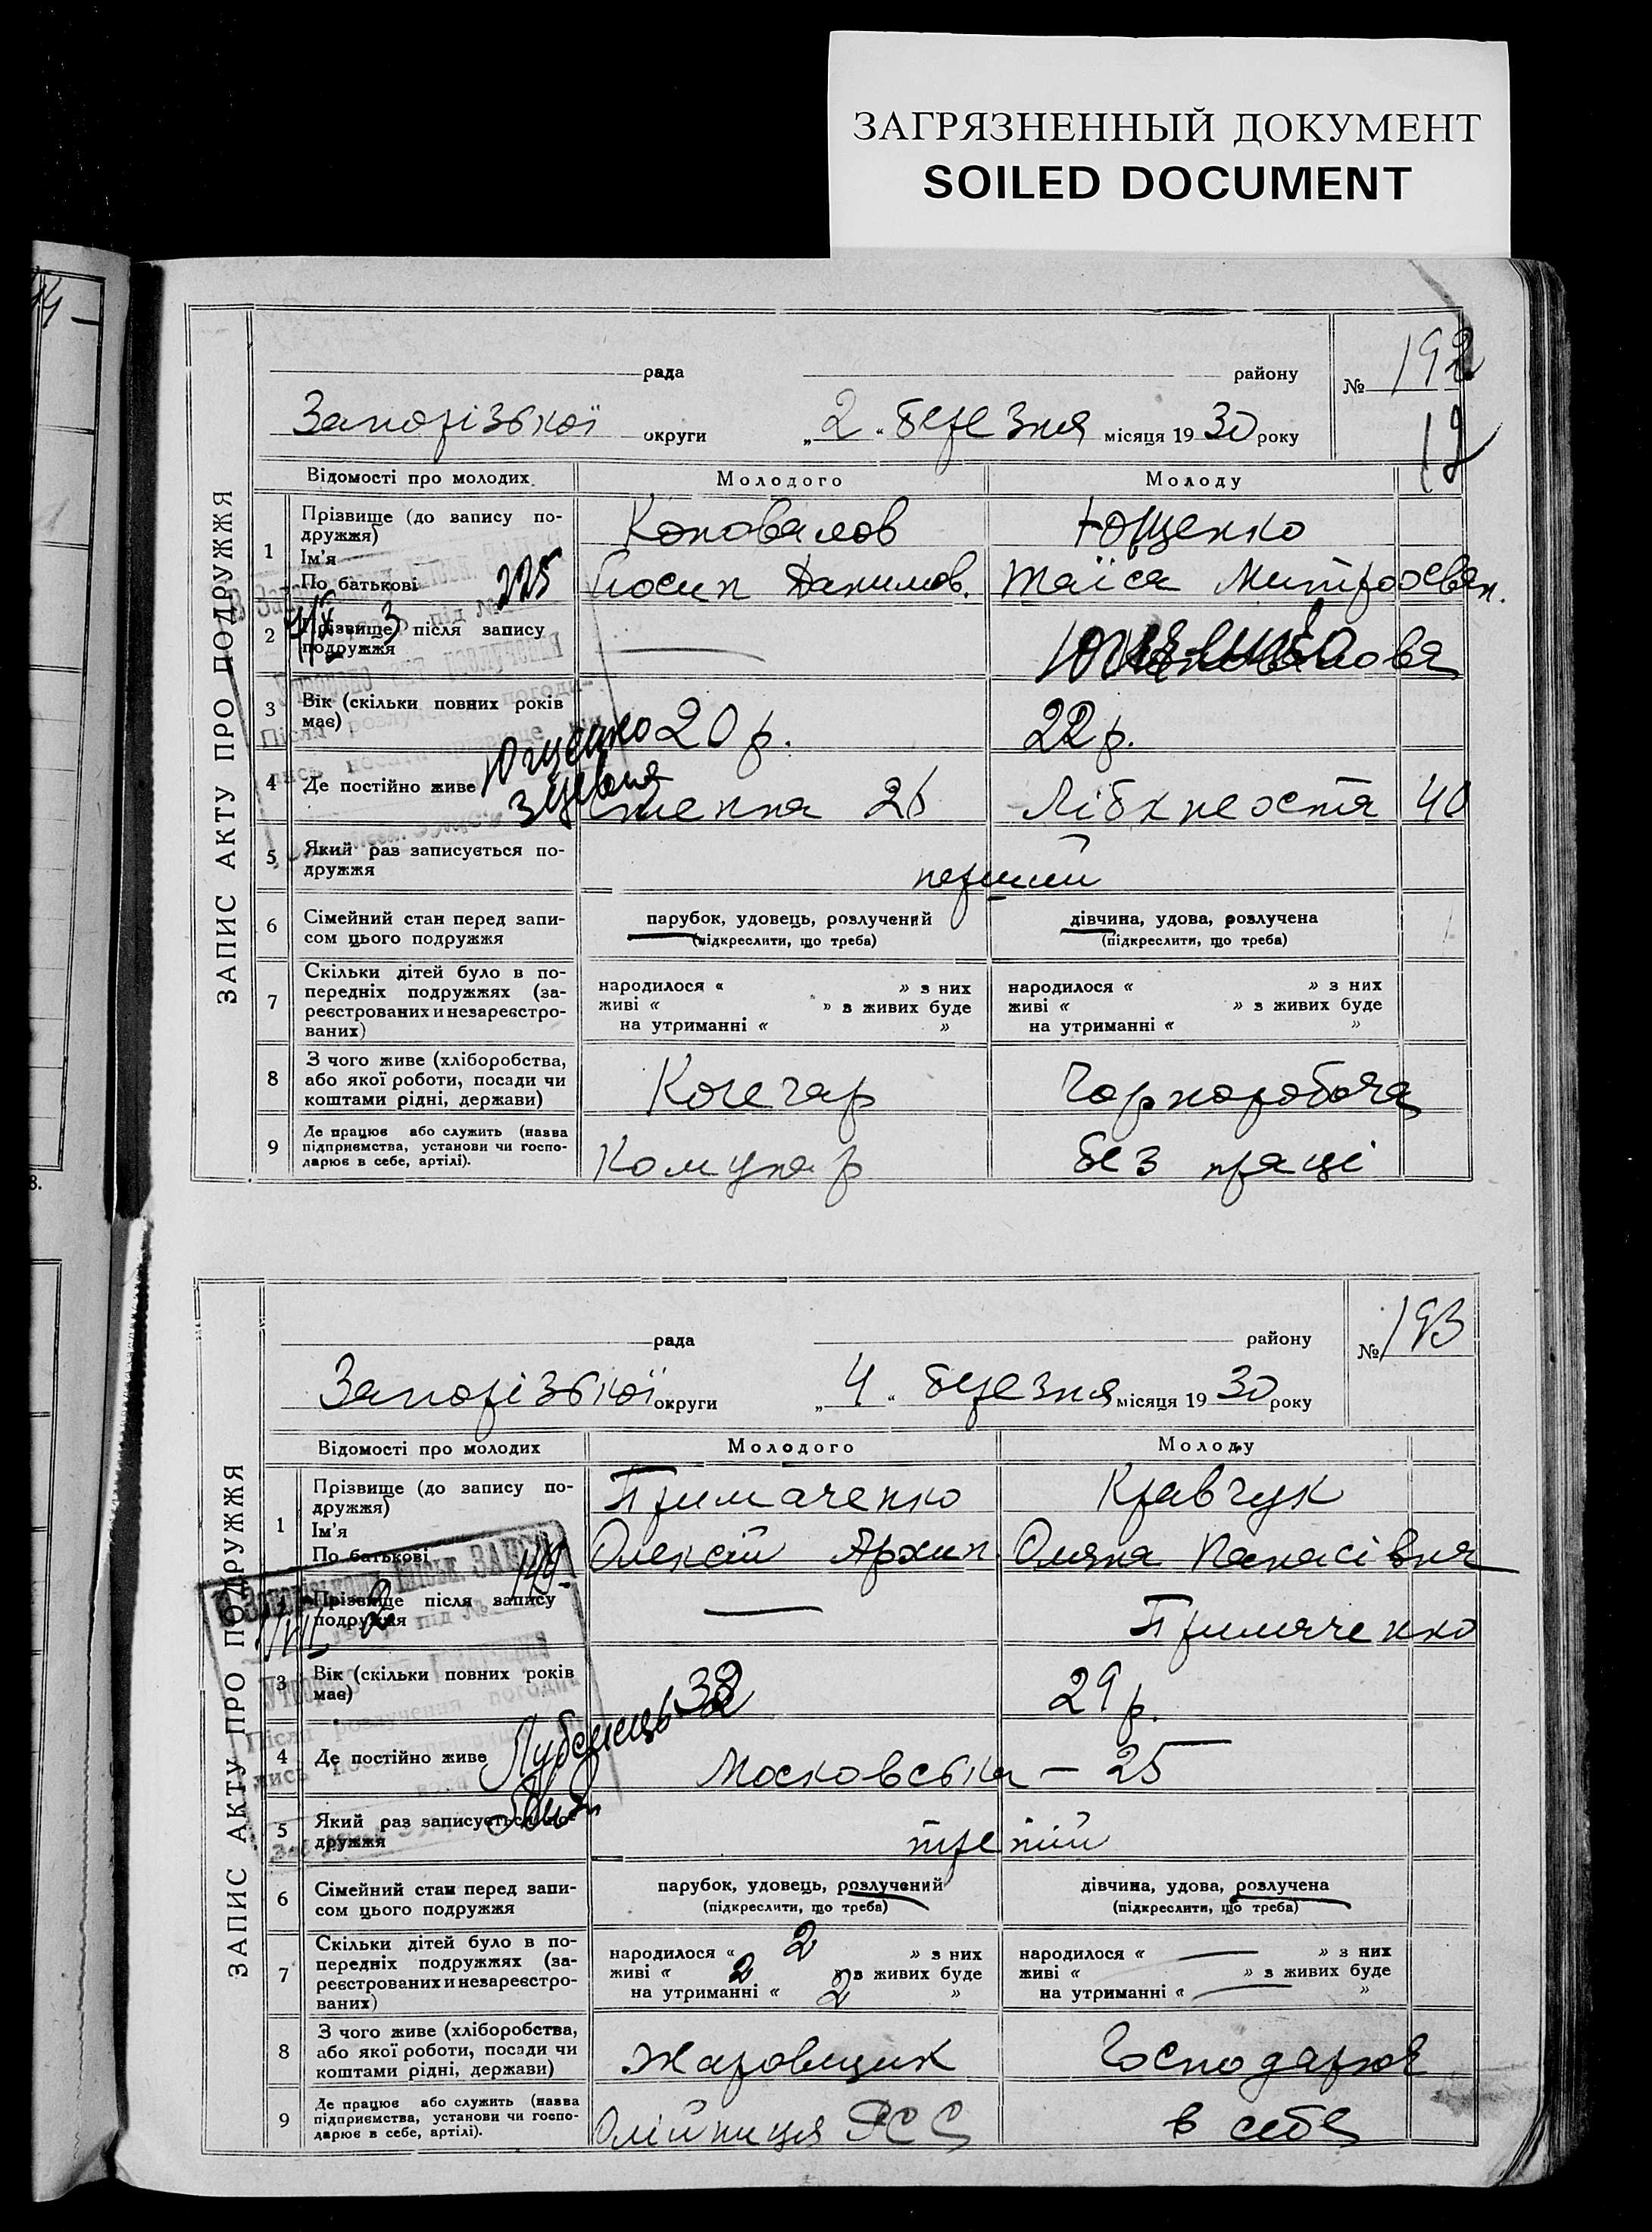 ЗАГРЯЗНЕННЫЙ ДОКУМЕНТ
SOILED DOCUMENT
ЗАПИС АКТУ ПРО ПОДРУЖЖЯ
рада району № 192
Запорізької округи „2“ березня місяця 1930 року
12
Відомості про молодих. Молодого Молоду
1 Прізвище (до запису по-
дружжя)
Ім'я
По батькові
Коновалов Ющенко
Йосип Данилов. Таїса Митрофан.
225
2 Прізвище після запису
подружжя
— Коновалова
3 Вік (скільки повних років
має)
20 р. 22 р.
Ющенко
4 Де постійно живе
26 Лібкнехта 40
5 Який раз записується по-
дружжя
перший
6 Сімейний стан перед запи-
сом цього подружжя
парубок, удовець, розлучений дівчина, удова, розлучена
(підкреслити, що треба) (підкреслити, що треба)
7 Скільки дітей було в по-
передніх подружжях (за-
реєстрованих и незареєстро-
ваних)
народилося « » з них народилося « » з них
живі « » з живих буде живі « » з живих буде
на утриманні « » на утриманні « »
8 З чого живе (хліборобства,
або якої роботи, посади чи
коштами рідні, держави)
Кочегар Чорноробоча
9 Де працює або служить (назва
підприємства, установи чи госпо-
дарює в себе, артілі).
Комунар без праці
ЗАПИС АКТУ ПРО ПОДРУЖЖЯ
рада району № 193
Запорізької округи „4“ березня місяця 1930 року
Відомості про молодих Молодого Молоду
1 Прізвище (до запису по-
дружжя)
Ім'я
По батькові
Примаченко Кравчук
Олексій Архип. Оляна Панасівна
149
Прізвище після запису
подружжя
— Примаченко
3 Вік (скільки повних років
має)
38 29 р.
4 Де постійно живе
Московська – 25
5 Який раз записується по-
дружжя
третій
6 Сімейний стан перед запи-
сом цього подружжя
парубок, удовець, розлучений дівчина, удова, розлучена
(підкреслити, що треба) (підкреслити, що треба)
7 Скільки дітей було в по-
передніх подружжях (за-
реєстрованих и незареєстро-
ваних)
народилося « 2 » з них народилося « — » з них
живі « 2 » з живих буде живі « » з живих буде
на утриманні « 2 » на утриманні « — »
8 З чого живе (хліборобства,
або якої роботи, посади чи
коштами рідні, держави)
Жаровщик Господарює
9 Де працює або служить (назва
підприємства, установи чи госпо-
дарює в себе, артілі).
Олійниця в себе